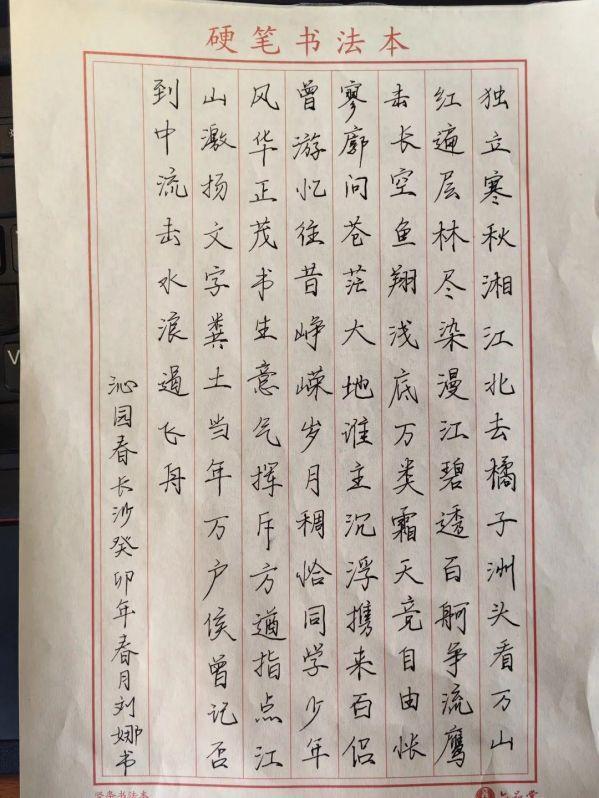 硬笔书法本
独立寒秋湘江北去橘子洲头看万山
红遍层林尽染漫江碧透百舸争流鹰
击长空鱼翔浅底万类霜天竞自由怅
寥廓问苍茫大地谁主沉浮携来百侣
曾游忆往昔峥嵘岁月稠恰同学少年
风华正茂书生意气挥斥方遒指点江
山激扬文字粪土当年万户侯曾记否
到中流击水浪遏飞舟
沁园春长沙癸卯年春月刘娜书